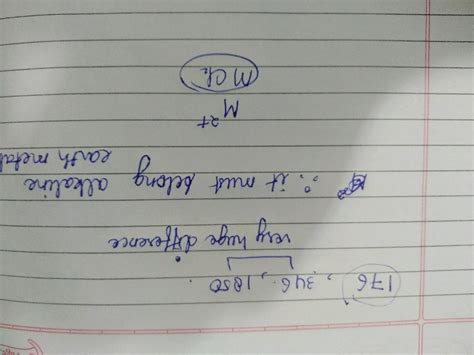 176, 346, 1850.
very huge difference
∴ it must belong alkaline
earth metal
M2+
MCl2